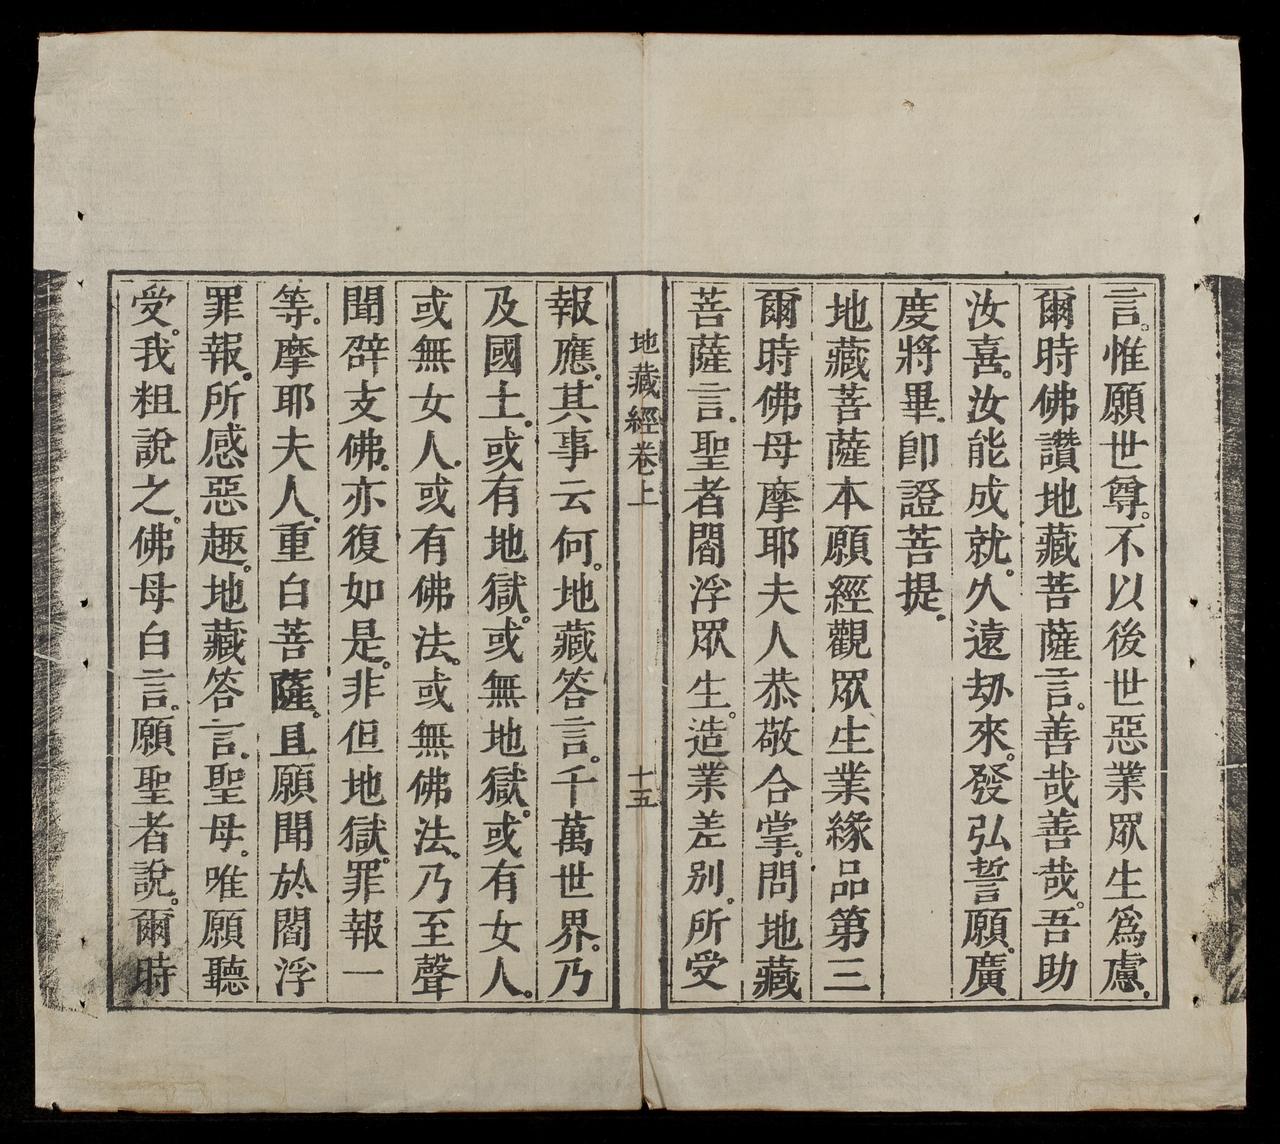 言。惟願世尊。不以後世惡業眾生爲慮。
爾時佛讚地藏菩薩言。善哉善哉。吾助
汝喜。汝能成就。久遠劫來。發弘誓願。廣
度將畢。卽證菩提。
地藏菩薩本願經觀眾生業緣品第三
爾時佛母摩耶夫人恭敬合掌。問地藏
菩薩言。聖者閻浮眾生。造業差別。所受
地藏經卷上
十五
報應。其事云何。地藏答言。千萬世界。乃
及國土。或有地獄。或無地獄。或有女人。
或無女人。或有佛法。或無佛法。乃至聲
聞辟支佛。亦復如是。非但地獄。罪報一
等。摩耶夫人。重白菩薩。且願聞於閻浮
罪報。所感惡趣。地藏答言。聖母。唯願聽
受。我粗說之。佛母白言。願聖者說。爾時